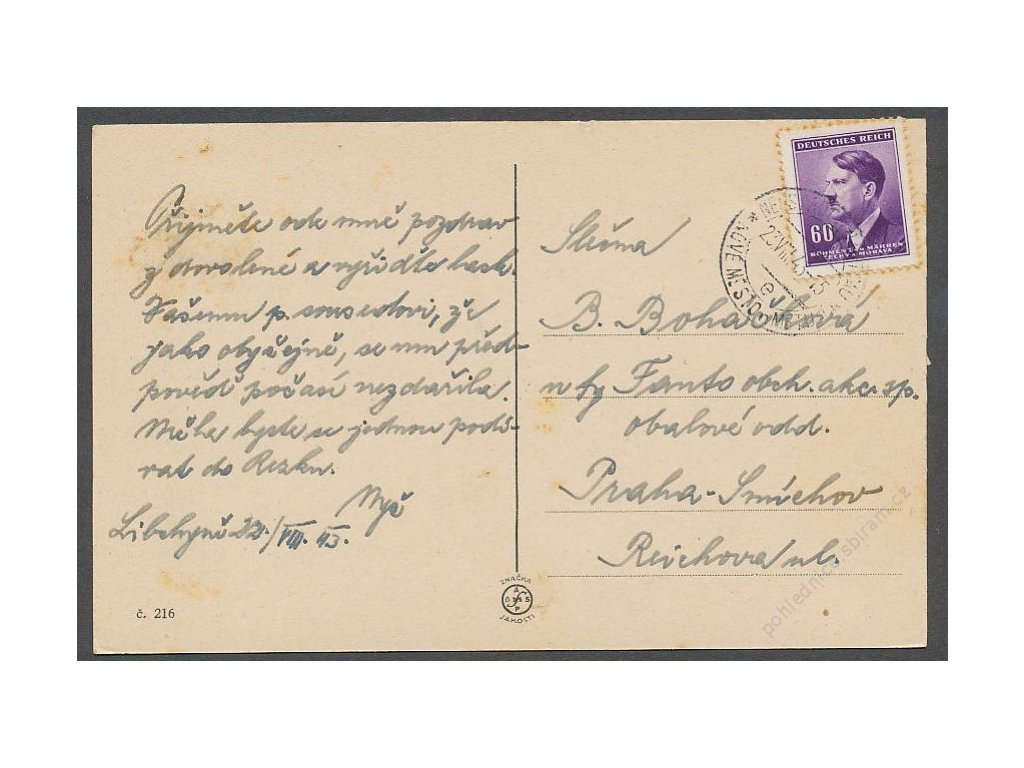 Přijměte ode mně pozdrav
z dovolené a vyřiďte lask.
Vašemu p. sousedovi, že
jako obyčejně, se mu před-
pověď počasí nezdařila.
Měla byste se jednou podí-
vat do Rezku.
Libchyně 22./VIII. 43.
č. 216
ZNAČKA
JAKOSTI
DEUTSCHES REICH
60
BÖHMEN U. MÄHREN
ČECHY A MORAVA
NOVÉ MĚSTO
Slečna
B. Boháčkova
u fy Fanto obch. akc. sp.
obalové odd.
Praha-Smíchov
Reichova ul.
pohlednice.sbiram.cz